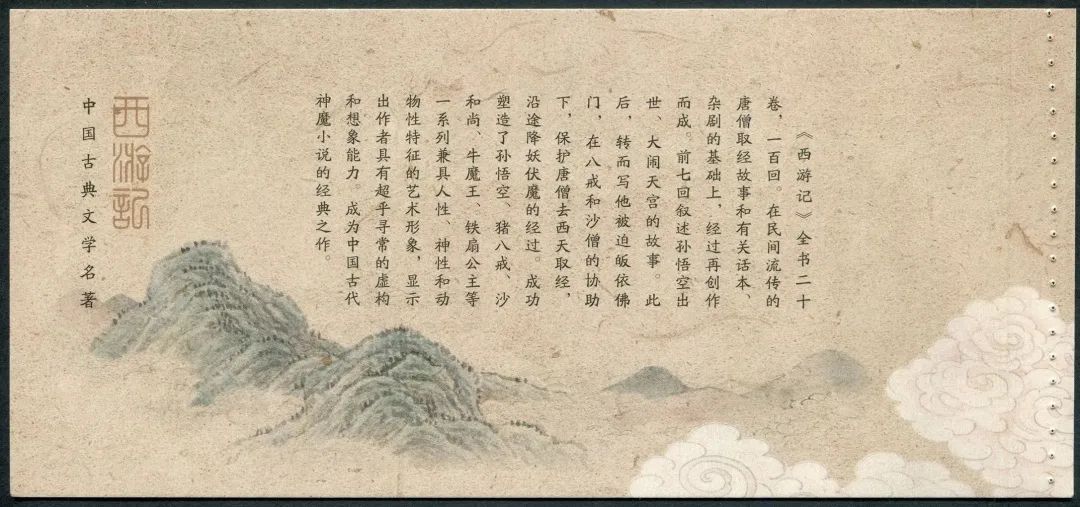 《西游记》全书二十
卷，一百回。在民间流传的
唐僧取经故事和有关话本、
杂剧的基础上，经过再创作
而成。前七回叙述孙悟空出
世、大闹天宫的故事。此
后，转而写他被迫皈依佛
门，在八戒和沙僧的协助
下，保护唐僧去西天取经，
沿途降妖伏魔的经过。成功
塑造了孙悟空、猪八戒、沙
和尚、牛魔王、铁扇公主等
一系列兼具人性、神性和动
物性特征的艺术形象，显示
出作者具有超乎寻常的虚构
和想象能力。成为中国古代
神魔小说的经典之作。
西游记
中国古典文学名著